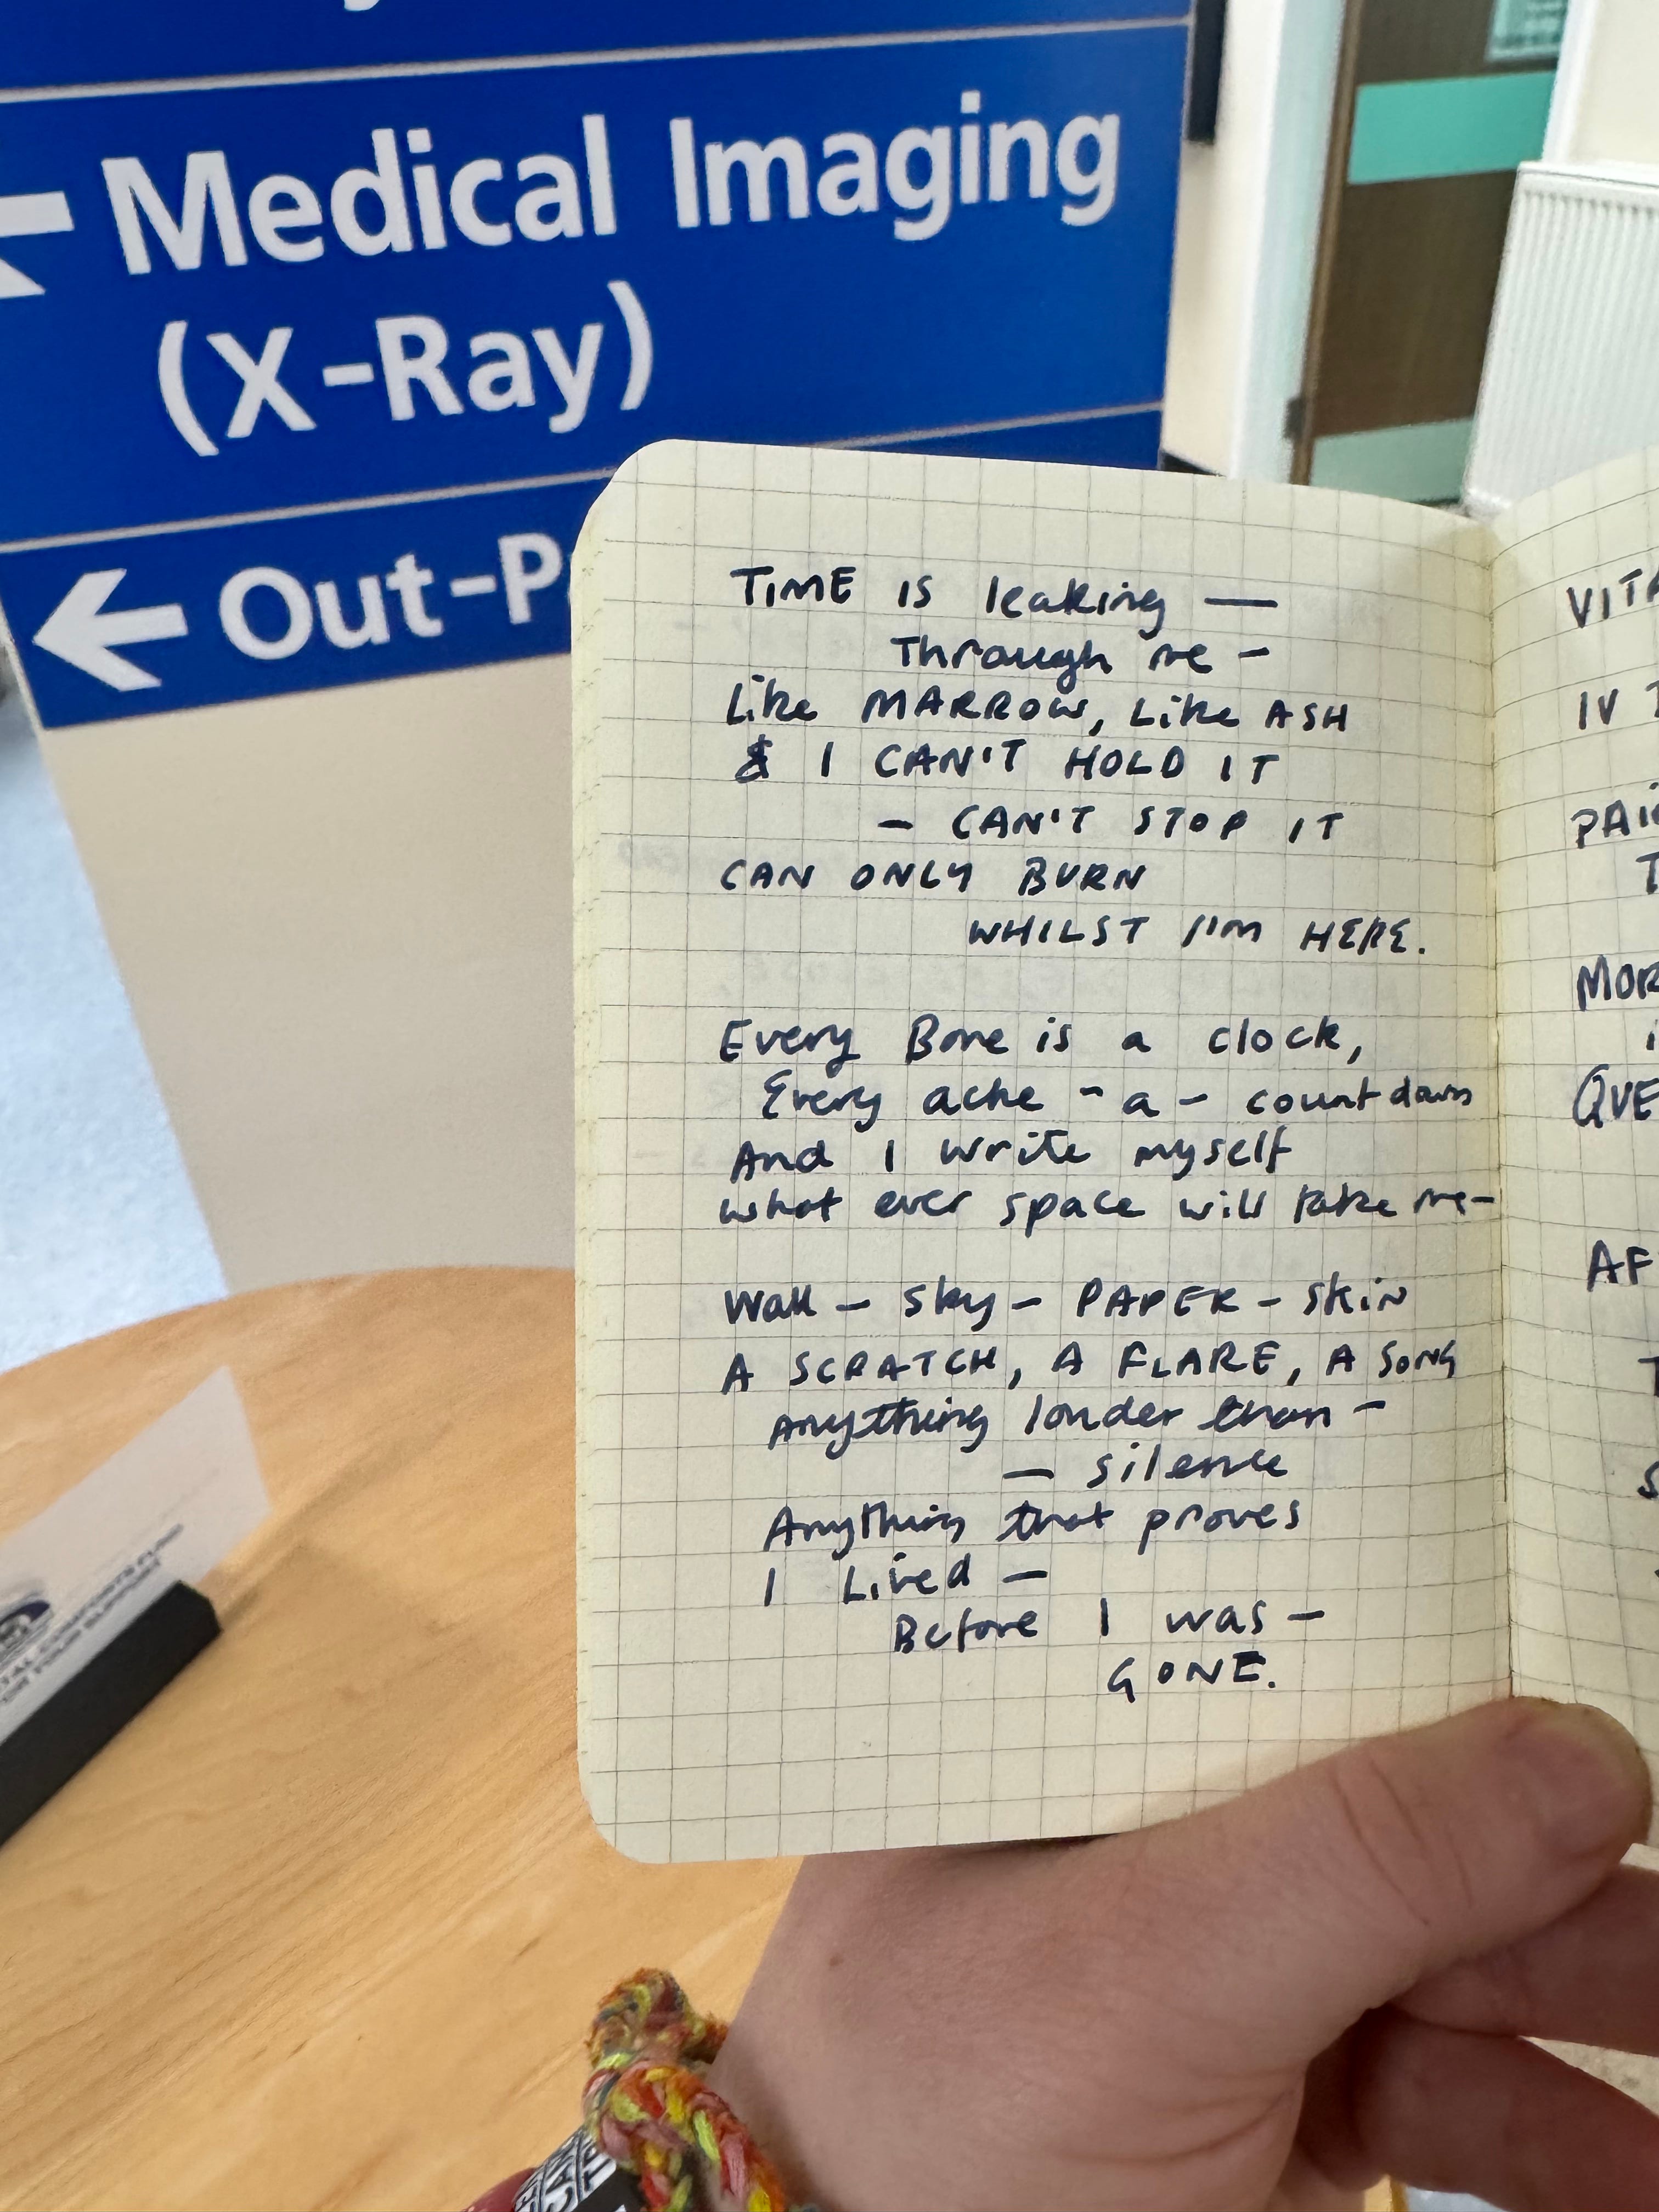 Medical Imaging
(X-Ray)
Out-P
TIME IS leaking —
Through me -
Like MARROW, Like ASH
& I CAN'T HOLD IT
- CAN'T STOP IT
CAN ONLY BURN
WHILST I'M HERE.
Every Bone is a clock,
Every ache - a - countdown
And I write myself
what ever space will take me-
Wall - sky - PAPER - skin
A SCRATCH, A FLARE, A SONG
Anything louder than -
— silence
Anything that proves
I Lived —
Before I was -
GONE.
VITA
IV T
PAI
T
MOR
i
QUE
AF
T
S